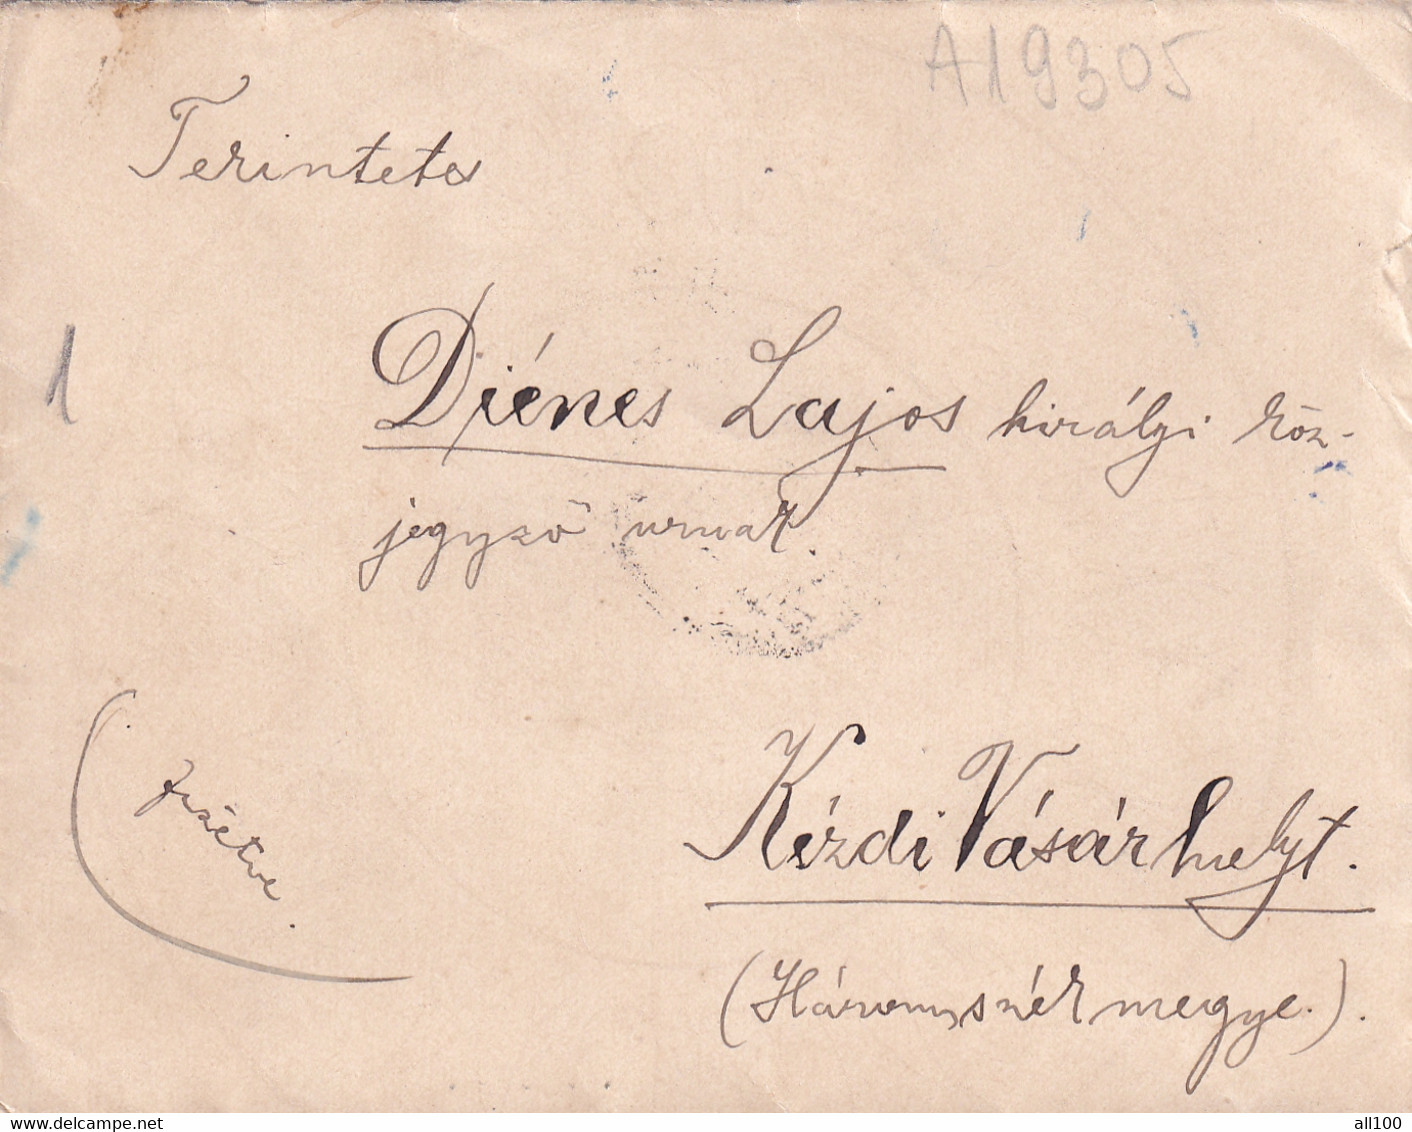 A19305
Terintetes
1
Diénes Lajos királyi köz-
jegyző urnak.
fizetve.
Kézdi Vásárhelyt.
(Háromszék megye.).
www.delcampe.net
all100